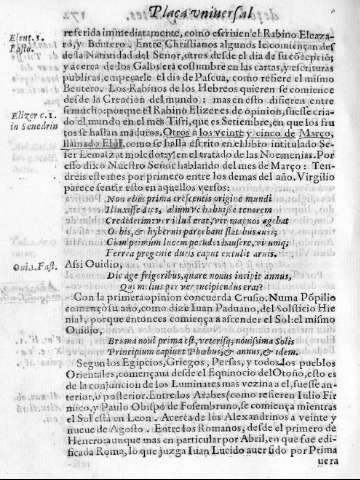 Plaça vniuersal
referida immediatamente, como escriuien el Rabino Eleaza-
ro, y Boutero. Entre Christianos algunos le comiençan des-
de la Natiuidad del Señor, otros desde el dia de su
y acerca de los Galos era costumbre en las cartas, y escrituras
publicas, empeçarle el dia de Pascua, como refiere el mismo
Beutero. Los Rabinos de los Hebreos quieren se comience
desde la Creacion del mundo: mas en esto difieren entre
si mucho; porque el Rabino Eliezer es de opinion, fuesse cria-
do el mundo en el mes Tisri, que es Setiembre, en que los fru
tos se hallan maduros. Otros a los veynte y cinco de Março,
llamado Elul, como se halla escrito en el libro intitulado Se-
der Lemaizot molotot; y en el tratado de las Neomenias. Por
esso dixo Nuestro Señor hablando del mes de Março: Ten-
dreis este mes por primero entre los demas del año. Virgilio
parece sentir esto en aquellos versos:
Non alios prima crescentis origine mundi
Illuxisse dies, aliumve habuisse tenorem
Crediderim: ver illud erat, ver magnus agebat
Orbis, & hybernis parcebant flatibus euri;
Cum primum lucem pecudes hausere, virumq;
Ferrea progenie duris caput extulit aruis.
Assi Ouidio,
Dic age frigoribus, quare nouus incipit annus,
Qui melius per ver incipiendus erat?
Con la primera opinion concuerda Crusio. Numa Põpilio
començò su año, como dize Iuan Paduano, del Solsticio Hie
mal, porque entonces comiença a ascender el Sol: el mismo
Ouidio,
Bruma noui prima est, veterisq; nouissima Solis
Principium capiunt Phœbus, & annus, & idem.
Segun los Egipcios, Griegos, Persas, y todos los pueblos
Orientales, començaua desde el Equinocio del Otoño, esto es
de la conjuncion de los Luminares mas vezina a el, fuesse an-
terior, ò posterior. Entre los Arabes, como refieren Iulio Fir
mico, y Paulo Obispo de Fosembruno, se comiença mientras
el Sol está en Leon. Acerca de los Alexandrinos a veinte y
nueue de Agosto. Entre los Romanos, desde el primero de
Henero: aunque mas en particular por Abril, en que fue edi-
ficada Roma, lo que juzga Iuan Lucido auer sido por Prima
uera
Eleaz. 1.
Pasto.
Elizer c. 1.
in Senedrin
Oui. 1. Fast.